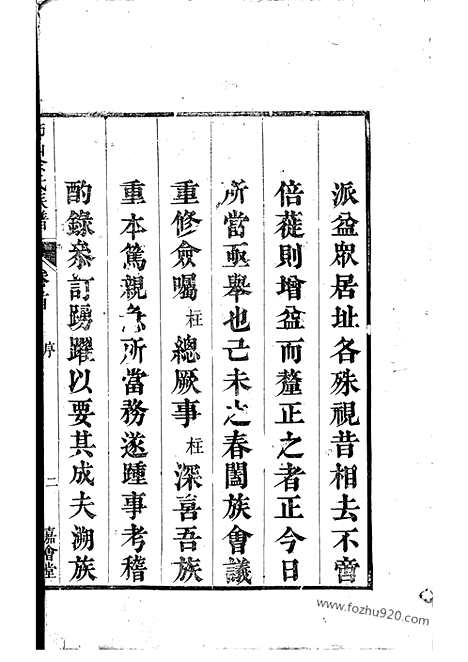 派益眾居址各殊視昔相去不啻
倍蓰則增益而釐正之者正今日
所當亟舉也己未之春闔族會議
重修僉囑柱總厥事柱深喜吾族
重本篤親急所當務遂踵事考稽
酌錄參訂踴躍以要其成夫溯族
氏族譜
卷首
序
二
嘉會堂
www.fozhu920.com